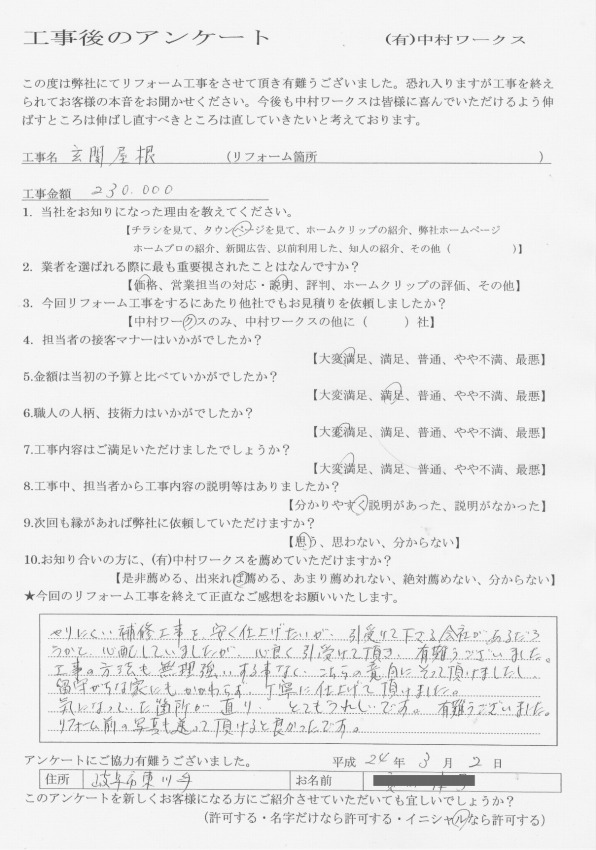 工事後のアンケート (有)中村ワークス
この度は弊社にてリフォーム工事をさせて頂き有難うございました。恐れ入りますが工事を終え
られてお客様の本音をお聞かせください。今後も中村ワークスは皆様に喜んでいただけるよう伸
ばすところは伸ばし直すべきところは直していきたいと考えております。
工事名 玄関屋根 (リフォーム箇所 )
工事金額 230.000
1. 当社をお知りになった理由を教えてください。
【チラシを見て、タウンページを見て、ホームクリップの紹介、弊社ホームページ
ホームプロの紹介、新聞広告、以前利用した、知人の紹介、その他（ ）】
2. 業者を選ばれる際に最も重要視されたことはなんですか？
【価格、営業担当の対応・説明、評判、ホームクリップの評価、その他】
3. 今回リフォーム工事をするにあたり他社でもお見積りを依頼しましたか？
【中村ワークスのみ、中村ワークスの他に（ ）社】
4. 担当者の接客マナーはいかがでしたか？
【大変満足、満足、普通、やや不満、最悪】
5.金額は当初の予算と比べていかがでしたか？
【大変満足、満足、普通、やや不満、最悪】
6.職人の人柄、技術力はいかがでしたか？
【大変満足、満足、普通、やや不満、最悪】
7.工事内容はご満足いただけましたでしょうか？
【大変満足、満足、普通、やや不満、最悪】
8.工事中、担当者から工事内容の説明等はありましたか？
【分かりやすく説明があった、説明がなかった】
9.次回も縁があれば弊社に依頼していただけますか？
【思う、思わない、分からない】
10.お知り合いの方に、(有)中村ワークスを薦めていただけますか？
【是非薦める、出来れば薦める、あまり薦めれない、絶対薦めない、分からない】
★今回のリフォーム工事を終えて正直なご感想をお願いいたします。
やりにくい補修工事を、安く仕上げたいが、引受けて下さる会社があるだろ
うかと、心配していましたが、心良く引受けて頂き、有難うございました。
工事の方法も無理強いする事なく、こちらの意向にそって頂けましたし、
留守がちな家にもかかわらず、丁寧に仕上げて頂けました。
気になっていた箇所が直り、とてもうれしいです。有難うございました。
リフォーム前の写真も送って頂けると良かったです。
アンケートにご協力有難うございました。 平成 24 年 3 月 2 日
住所 岐阜市東川手 お名前
このアンケートを新しくお客様になる方にご紹介させていただいても宜しいでしょうか？
(許可する・名字だけなら許可する・イニシャルなら許可する)